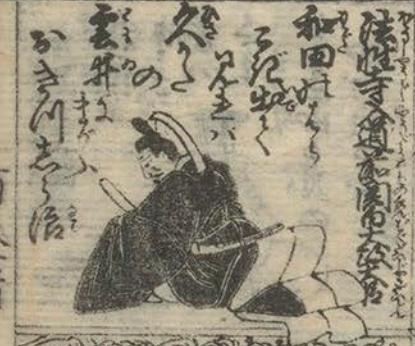 法性寺入道前関白太政大臣
和田のはら
こぎ出て
見れハ
久かた
の
雲井に
まがふ
おきつしら浪